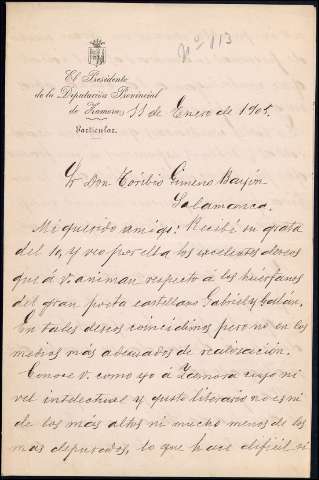 Nº 113
El Presidente
de la Diputación Provincial
de Zamora
Particular.
11 de Enero de 1905.
Sr Don Toribio Gimeno Bayón
Salamanca.
Mi querido amigo: Recibí su grata
del 10, y veo por ella los excelentes deseos
que á V. animan respecto á los huérfanos
del gran poeta castellano Gabriel y Galan.
En tales deseos coincidimos pero no en los
medios más adecuados de realización.
Conoce V. como yo á Zamora cuyo ni
vel intelectual y gusto literario no es ni
de los más altos ni mucho menos de los
más depurados, lo que hace difícil si